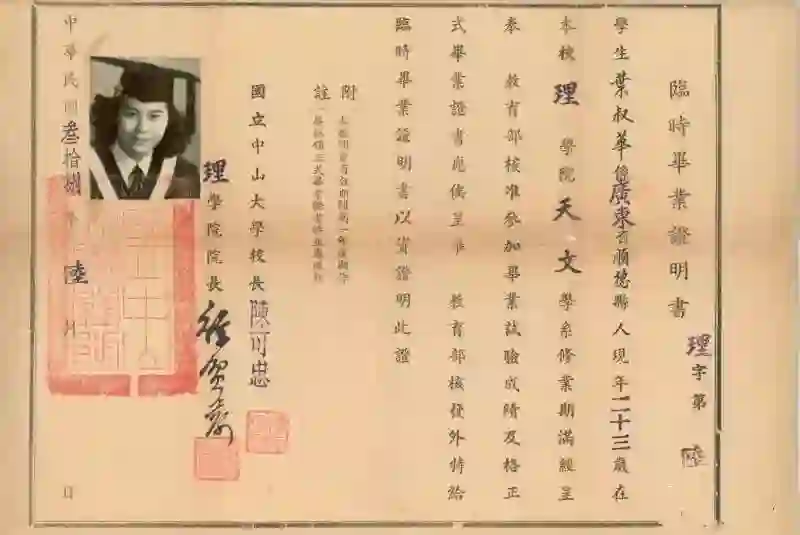 臨時畢業證明書
理字第 陸
學生葉叔華係廣東省順德縣人現年二十三歲在
本校理學院天文學系修業期滿經呈
奉 教育部核准參加畢業試驗成績及格正
式畢業證書應俟呈准 教育部核發外特給
臨時畢業證明書以資證明此證
附註
國立中山大學校長陳可忠
理學院院長
中華民國叁拾捌年陸月 日